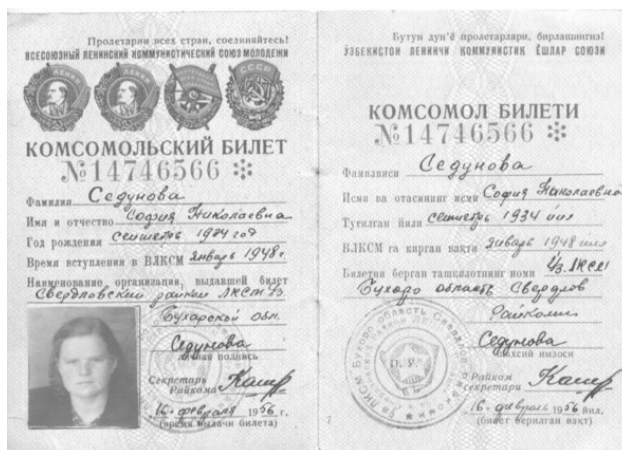 Пролетарии всех стран, соединяйтесь!
ВСЕСОЮЗНЫЙ ЛЕНИНСКИЙ КОММУНИСТИЧЕСКИЙ СОЮЗ МОЛОДЕЖИ
КОМСОМОЛЬСКИЙ БИЛЕТ
№14746566
Фамилия Седунова
Имя и отчество София Николаевна
Год рождения сентябрь 1934 год
Время вступления в ВЛКСМ январь 1948г.
Наименование организации, выдавшей билет
Свердловский райком ЛКСМ Уз.
Бухарской обл.
Седунова
личная подпись
Секретарь
Райкома
16 февраля 1956 г.
(время выдачи билета)
Бутун дунё пролетарлари, бирлашингиз!
ЎЗБЕКИСТОН ЛЕНИНЧИ КОММУНИСТИК ЁШЛАР СОЮЗИ
КОМСОМОЛ БИЛЕТИ
№14746566
Фамилияси Седунова
Исми ва отасининг исми София Николаевна
Туғилган йили сентябрь 1934 йил
ВЛКСМ га кирган вақти январь 1948 йил
Билетни берган ташкилотнинг номи Уз.ЛКСМ
Бухоро область Свердлов
Райкоми
Седунова
шахсий имзоси
Райком
секретари
16 февраль 1956 йил.
(билет берилган вақт)